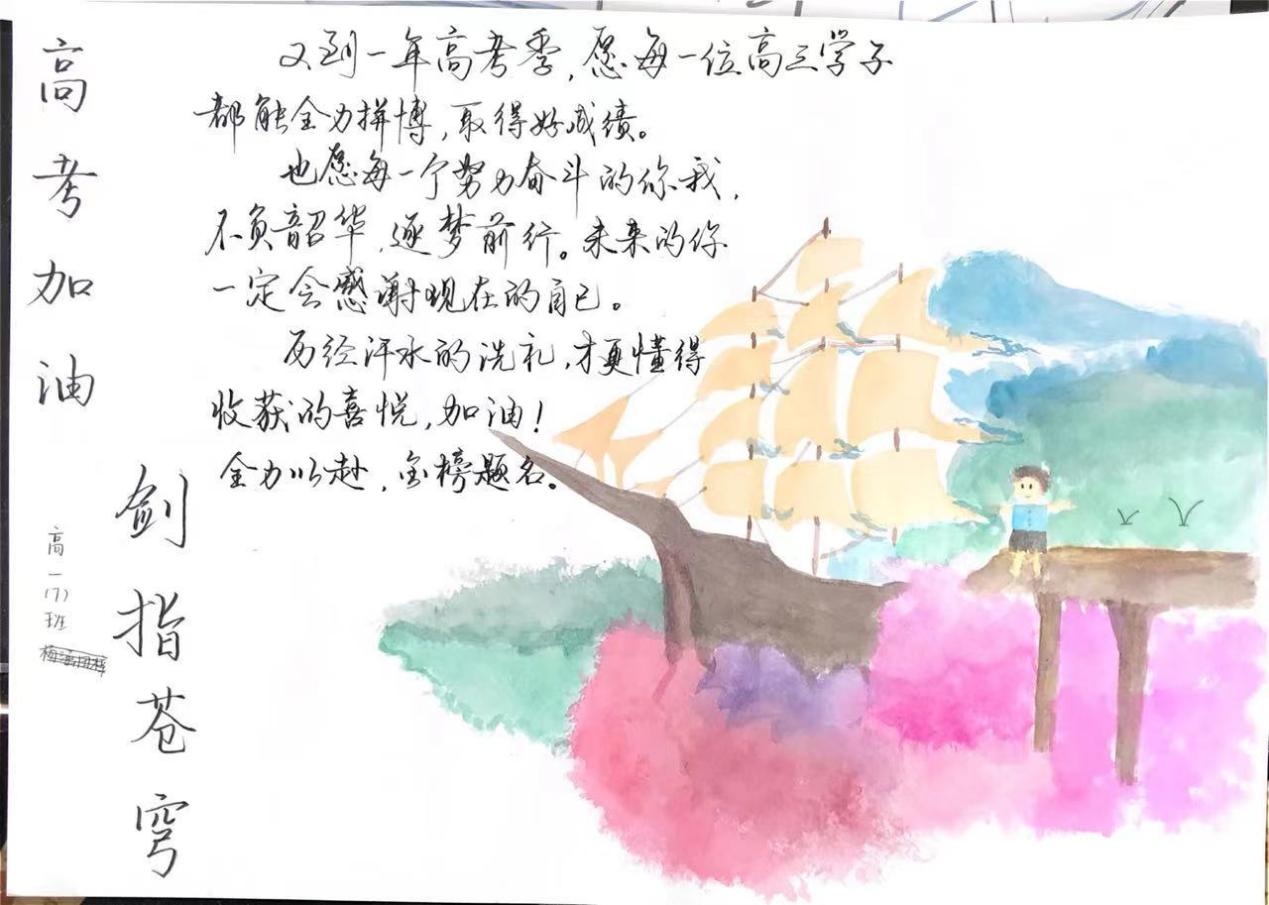 高考加油
剑指苍穹
高一(7)班
又到一年高考季，愿每一位高三学子
都能全力拼博，取得好成绩。
也愿每一个努力奋斗的你我，
不负韶华，逐梦前行。未来的你
一定会感谢现在的自己。
历经汗水的洗礼，才更懂得
收获的喜悦，加油！
全力以赴，金榜题名。